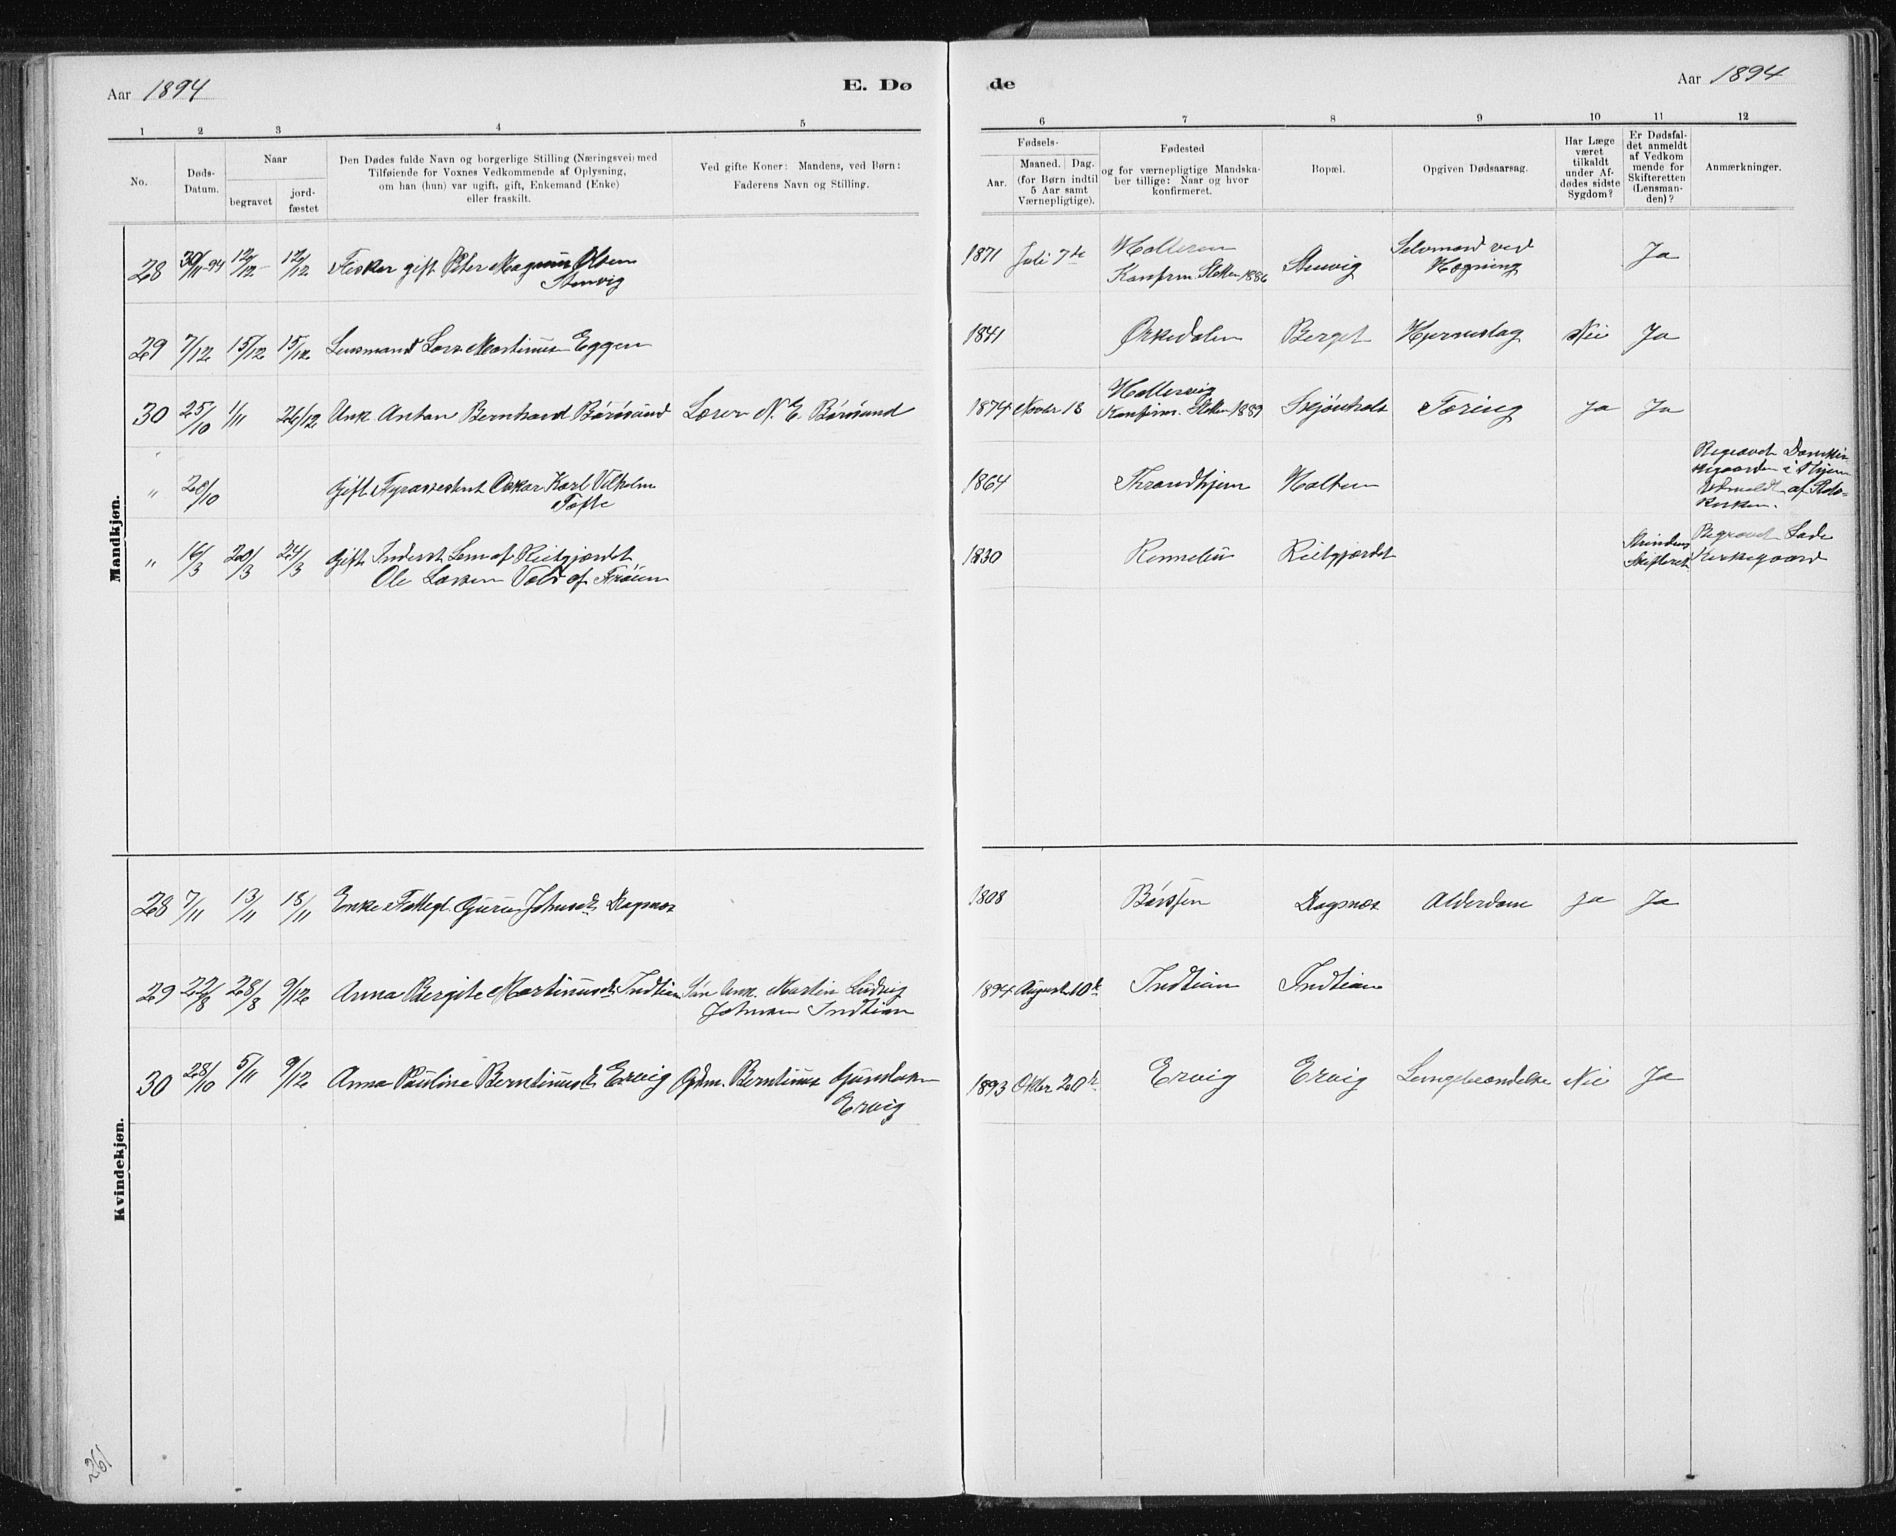 Aar 1894
E. Dø
de
Aar 1894
1 2 3 4 5
6 7 8 9 10 11 12
No.
Døds-
Datum.
Naar
begravet
jord-
fæstet
Den Dødes fulde Navn og borgerlige Stilling (Næringsvei) med
Tilføiende for Voxnes Vedkommende af Oplysning,
om han (hun) var ugift, gift, Enkemand (Enke)
eller fraskilt.
Ved gifte Koner: Mandens, ved Børn:
Faderens Navn og Stilling.
Fødsels-
Aar.
Maaned. Dag.
(for Børn indtil
5 Aar samt
Værnepligtige).
Fødested
og for værnepligtige Mandska-
ber tillige: Naar og hvor
konfirmeret.
Bopæl.
Opgiven Dødsaarsag.
Har Læge
været
tilkaldt
under Af-
dødes sidste
Sygdom?
Er Dødsfal-
det anmeldt
af Vedkom
mende for
Skifteretten
(Lensman-
den)?
Anmærkninger.
Mandkjøn.
28 30/11-94 12/12 12/12 Fisker gift Peter Magnus Olsen
Stenvig
1871 Juli 7de
Konfirm 1886
Stenvig
Selvmord ved
Hægning
Ja
29 7/12 15/12 15/12 Lensmand Lars Martinus Eggen
1841 Ørkedalen Berget Hjerneslag Nei Ja
30 25/10 1/11 26/12 Unk. Anton Bernhard Børøsund Lærer N. E. Børøsund
1874 Novbr 18
Konfirm. 1889
Tæring Ja Ja
" 20/10 gift Fyrassistent Oskar Karl Vilhelm
Tofte
1864 Throndhjem Halten
Begravet
" 16/3 20/3 24/3 gift Inderst
Ole Larsen
1830 Rennebu Reitgjærdet
Strindens
Skifteret
Begravet Lade
Kirkegaard
Kvindekjøn.
28 7/11 13/11 18/11 Enke Guru Johnsd. Dagsnes
1808 Børsen Dagsnes Alderdom Ja Ja
29 22/8 28/8 9/12 Anna Bergite Martinusd. Indtian Martin Ludvig
Johnsen Indtian
1894 August 10de Indtian Indtian
30 28/10 5/11 9/12 Anna Pauline Berntinusd. Ervig Gdm. Berntinus
Ervig
1893 Oktbr 20de Ervig Ervig Lungebetændelse Nei Ja
261